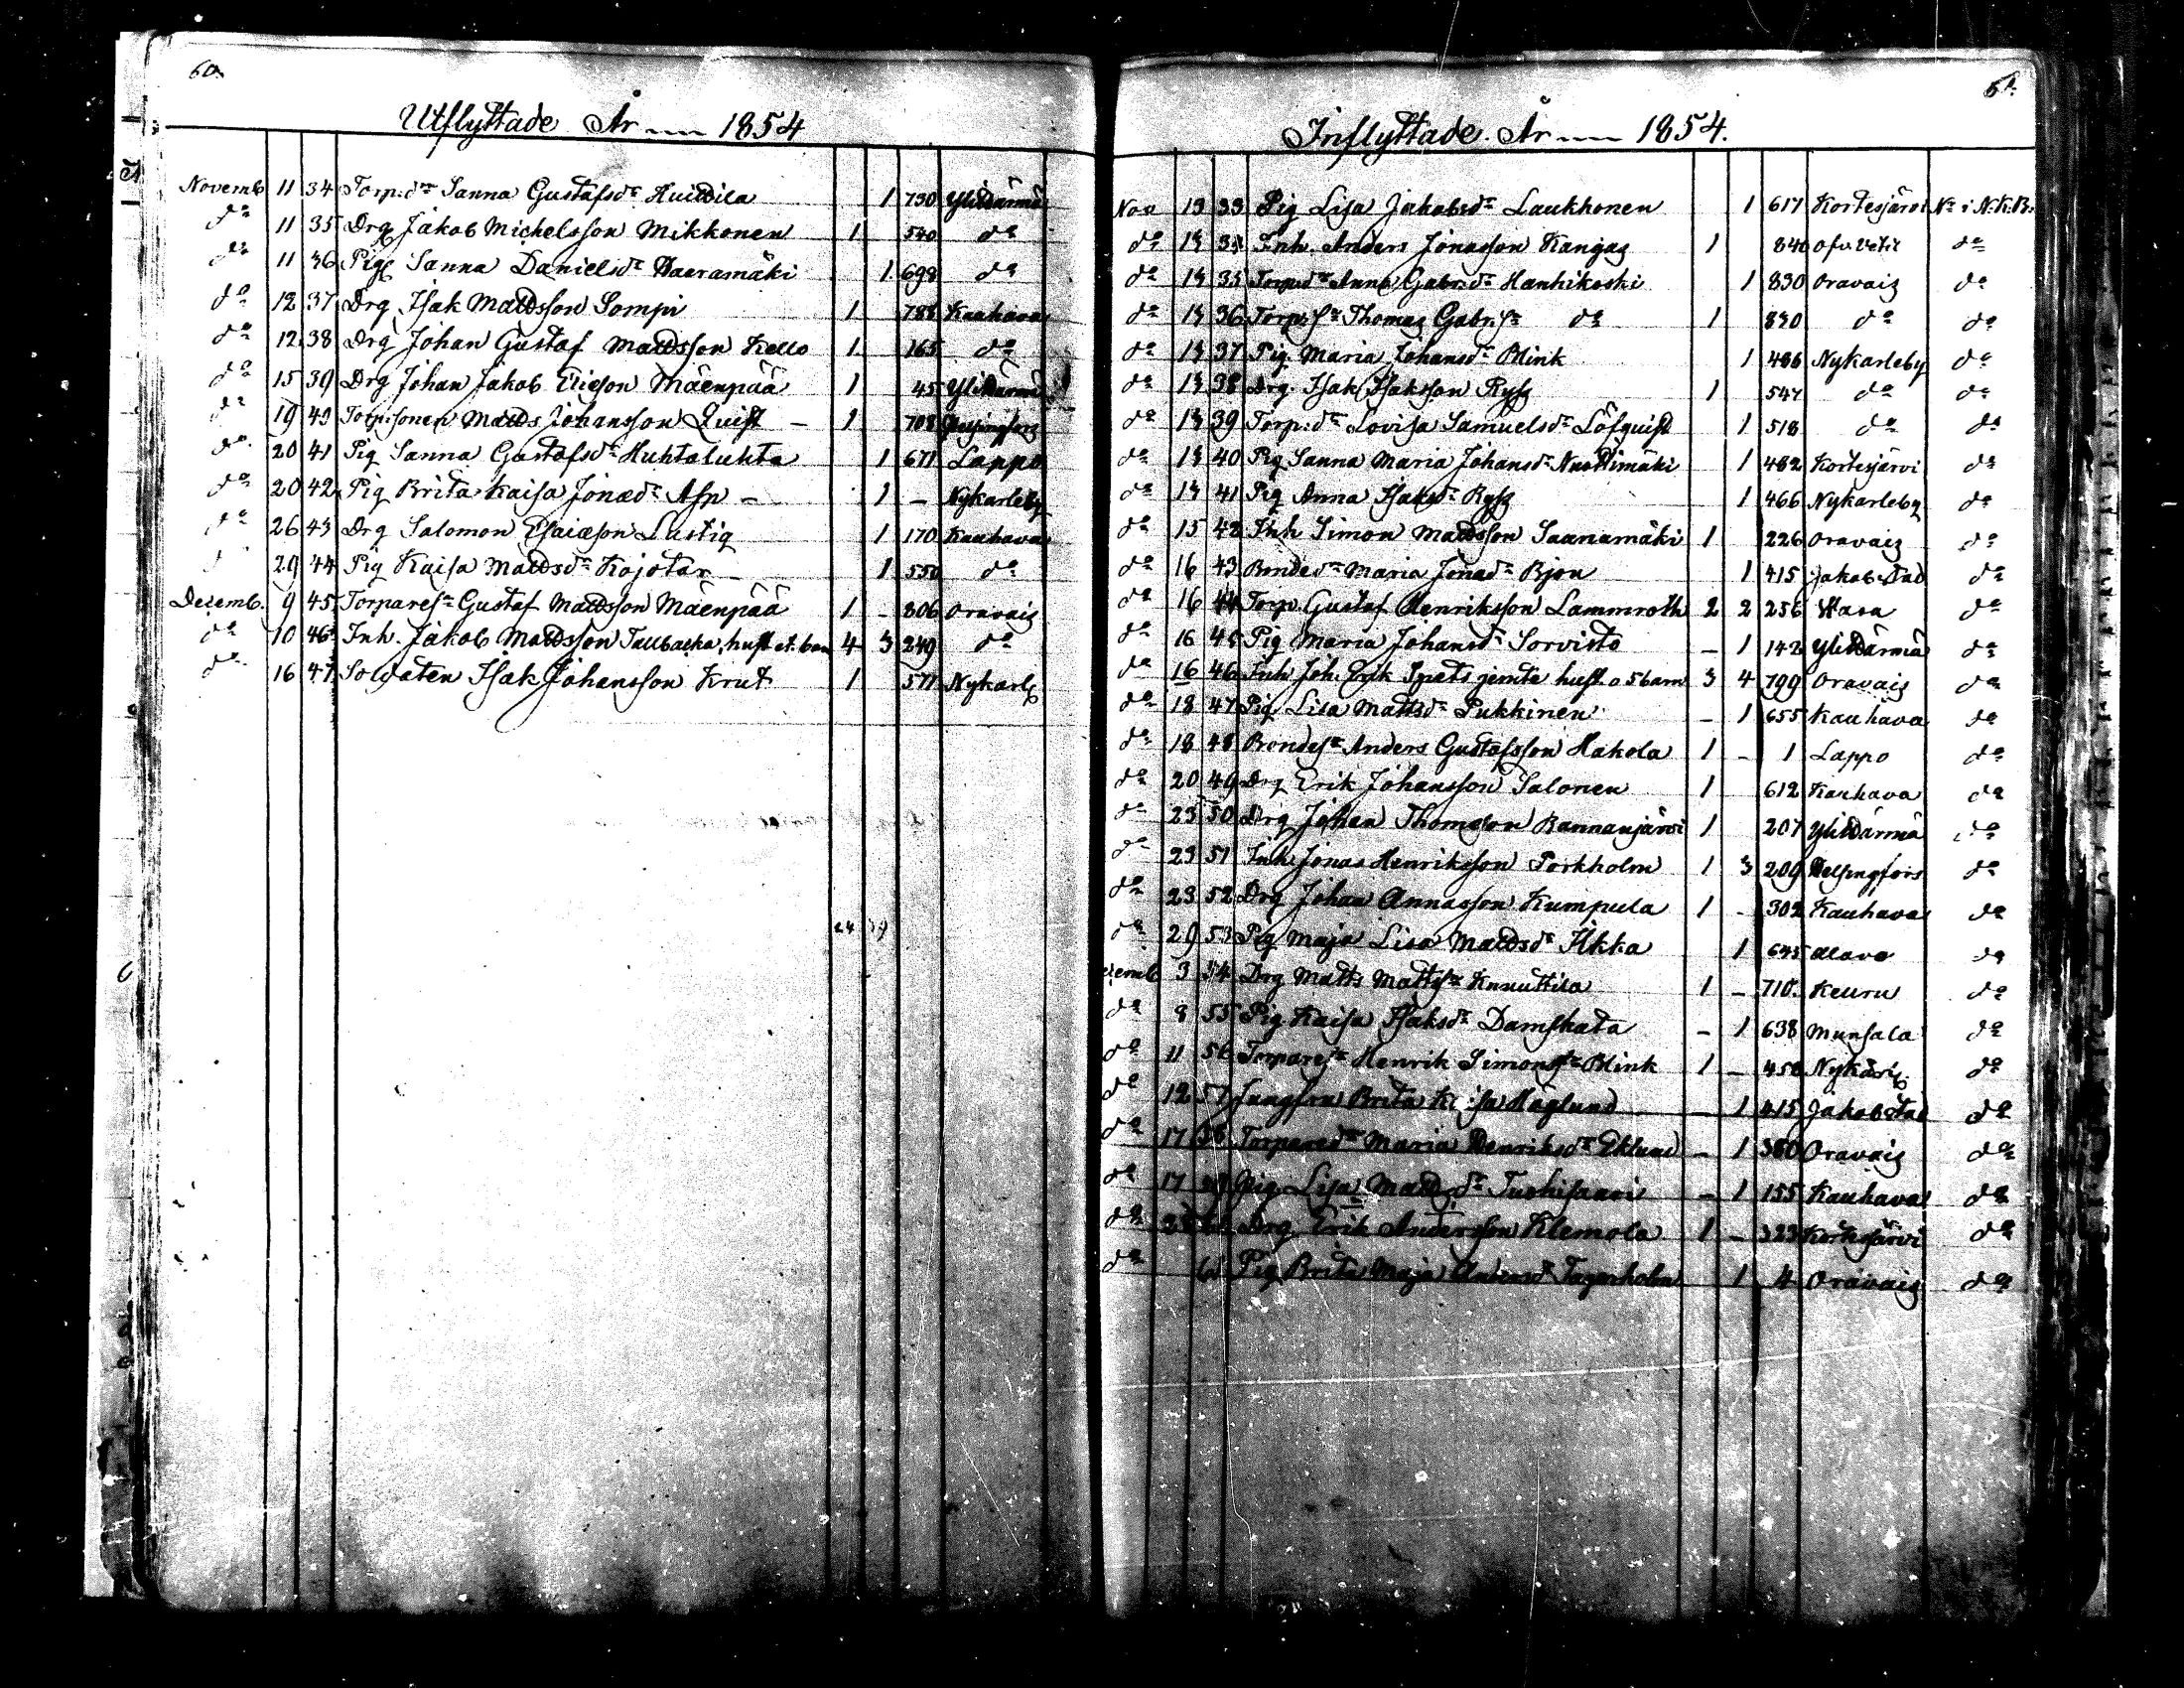 60.
Utflyttade År 1854
Novemb. 11 34 Torp:dr Sanna Gustafsdr 1 730 Ylihärmä
do 11 35 Drg Jakob Michelsson Mikkonen 1 540 do
do 11 36 Pig Sanna Danielsdr Haaramäki 1 698 do
do 12 37 Drg Isak Mattsson Sompi 1 788 Kauhava
do 12 38 Drg Johan Gustaf Mattsson Kello 1 165 do
do 15 39 Drg Johan Jakob Ericson Mäenpää 1 45 Ylihärmä
do 19 40 Torp:sonen Matts Johansson Quist – 1 708 Helsingfors
do 20 41 Pig Sanna Gustafsdr Huhtaluhta 1 671 Lappo
do 20 42 Pig Brita Kaisa Jonædr Asp – 1 – Nykarleby
do 26 43 Drg Salomon Esaiæson Lustig 1 170 Kauhava
29 44 Pig Kaisa Mattsdr Kojotar 1 550 do
Decemb. 9 45 Torparesn Gustaf Mattsson Mäenpää 1 – 806 Oravais
do 10 46 Inh. Jakob Mattsson Tallbacka, hust et. barn 4 3 249 do
do 16 47 Soldaten Isak Johansson Krut 1 571 Nykarlb
24 9
61.
Inflyttade År 1854.
Nov 13 33 Pig Lisa Jakobsdr Laukkonen 1 617 Kortesjärvi No i N.K.B.
do 14 34 Inh. Anders Jonasson Kangas 1 840 Öfv. Vetil do
do 14 35 Torp:dr Anna Gabr:dr Hanhikoski 1 830 Oravais do
do 14 36 Torp:sn Thomas Gabr:sn do 1 830 do do
do 14 37 Pig Maria Johansdr Blink 1 486 Nykarleby do
do 14 38 Drg. Isak Isaksson Ryss 1 547 do do
do 14 39 Torp:dr Lovisa Samuelsdr Löfquist 1 518 do do
do 14 40 Pig Sanna Maria Johansdr Nuottimäki 1 482 Kortesjärvi do
do 14 41 Pig Anna Isaksdr Ryss 1 466 Nykarleby do
do 15 42 Inh Simon Mattsson Saanamäki 1 226 Oravais do
do 16 43 Bondedr Maria Jonædr Bjon 1 415 Jakobstad do
do 16 44 Torp. Gustaf Henriksson Lammroth 2 2 256 Wasa do
do 16 45 Pig Maria Johansdr Sorvisto – 1 142 Ylihärmä do
do 16 46 Inh Joh. Erik Spets jemte hust. o 5 barn 3 4 799 Oravais do
do 18 47 Pig Lisa Mattsdr Pukkinen – 1 655 Kauhava do
do 18 48 Bondesn Anders Gustafsson Hakola 1 – 1 Lappo do
do 20 49 Drg Erik Johansson Salonen 1 612 Kauhava do
do 23 50 Drg Johan Thomasson Rannanjärvi 1 207 Ylihärmä do
do 23 51 Inh: Jonas Henriksson Porkholm 1 3 209 Helsingfors do
do 23 52 Drg Johan Annasson Kumpula 1 – 302 Kauhava do
do 29 53 Pig Maja Lisa Mattsdr Ilkka 1 645 Alavo do
Decemb 3 54 Drg Matts Mattsn Knuuttila 1 – 710. Keuru do
do 8 55 Pig Kaisa Isaksdr Damskata – 1 638 Munsala do
do 11 56 Torparesn Henrik Simonsn Blink 1 – 450 Nykarlb do
do 12 57 Jungfru Brita Kaisa Haglund – 1 415 Jakobstad do
do 17 58 Torparedr Maria Henriksdr Eklund – 1 380 Oravais do
do 17 59 Pig Lisa Mattsdr Tuohisaari – 1 155 Kauhava do
do 60 Drg Erik Andersson Klemola 1 – 323 Kortesjärvi do
do 61 Pig Brita Maja Andersdr Tagarholm 1 4 Oravais do